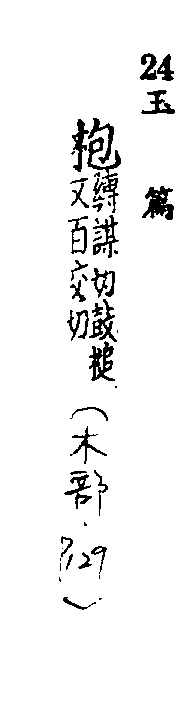 24玉篇
枹縛謀切鼓槌
又百交切
(木部·7/29)